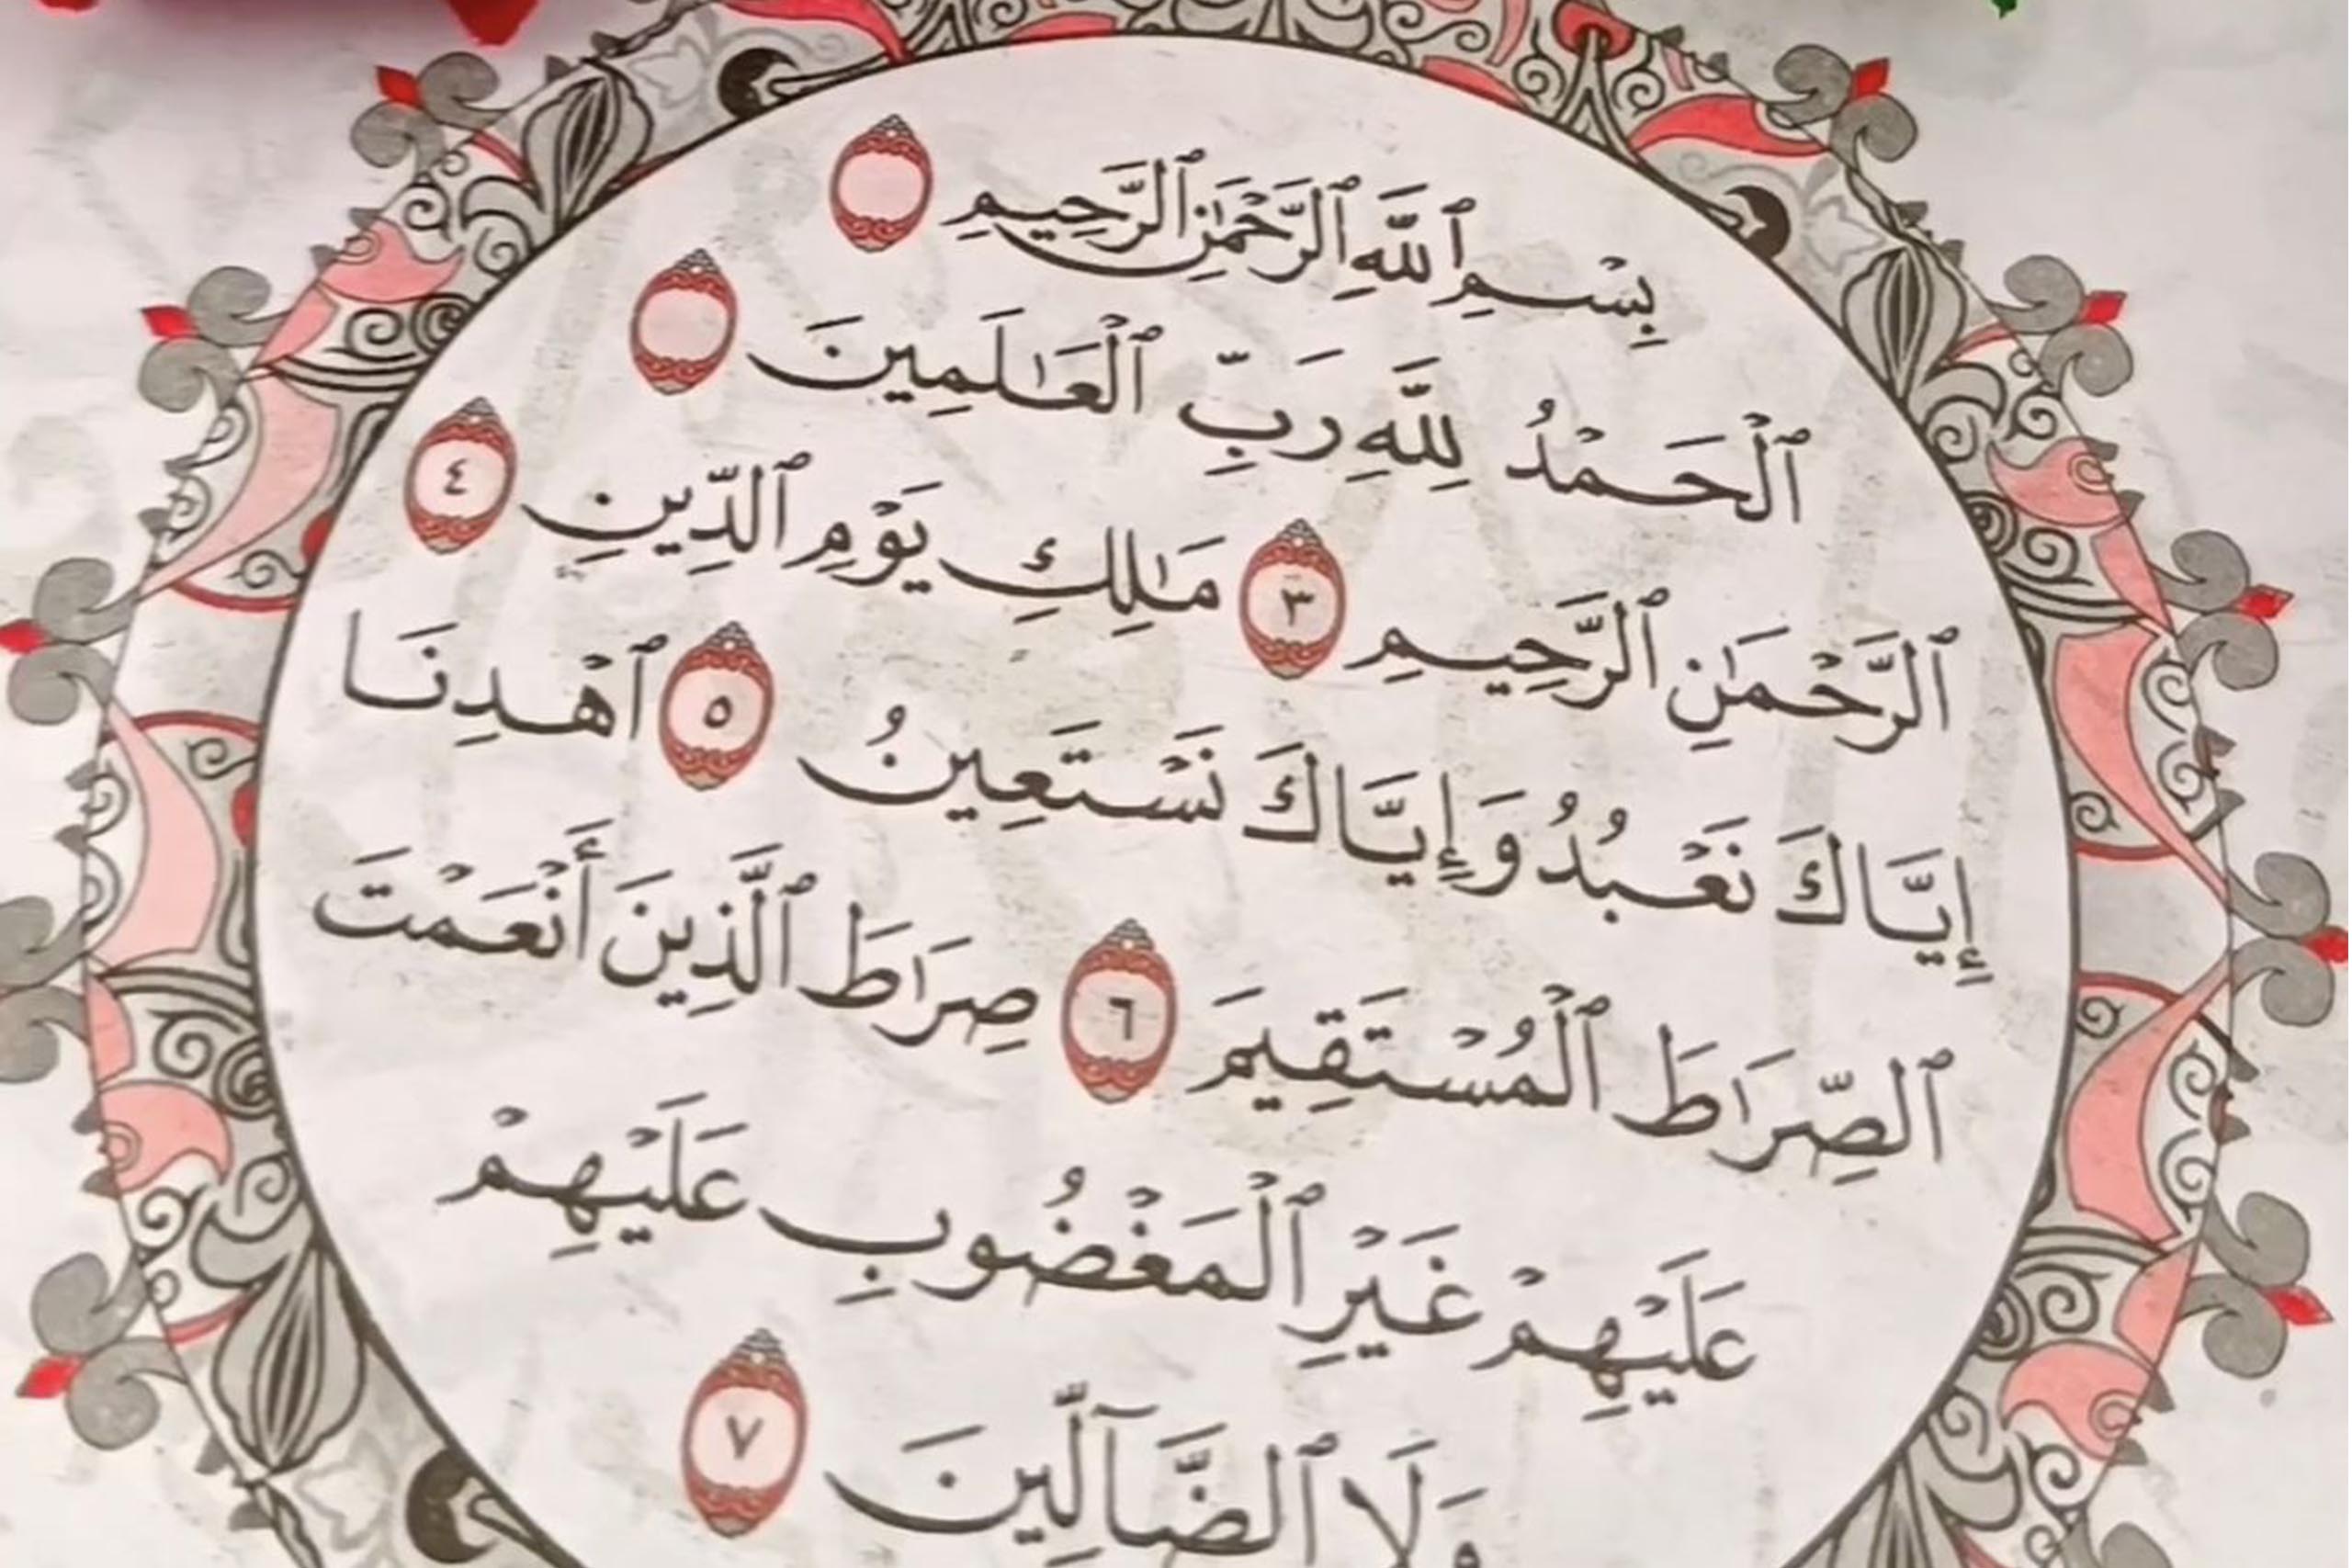 بِسْمِ ٱللَّهِ ٱلرَّحْمَٰنِ ٱلرَّحِيمِ
ٱلْحَمْدُ لِلَّهِ رَبِّ ٱلْعَٰلَمِينَ
ٱلرَّحْمَٰنِ ٱلرَّحِيمِ ٣ مَٰلِكِ يَوْمِ ٱلدِّينِ ٤
إِيَّاكَ نَعْبُدُ وَإِيَّاكَ نَسْتَعِينُ ٥ ٱهْدِنَا
ٱلصِّرَٰطَ ٱلْمُسْتَقِيمَ ٦ صِرَٰطَ ٱلَّذِينَ أَنْعَمْتَ
عَلَيْهِمْ غَيْرِ ٱلْمَغْضُوبِ عَلَيْهِمْ
وَلَا ٱلضَّآلِّينَ ٧